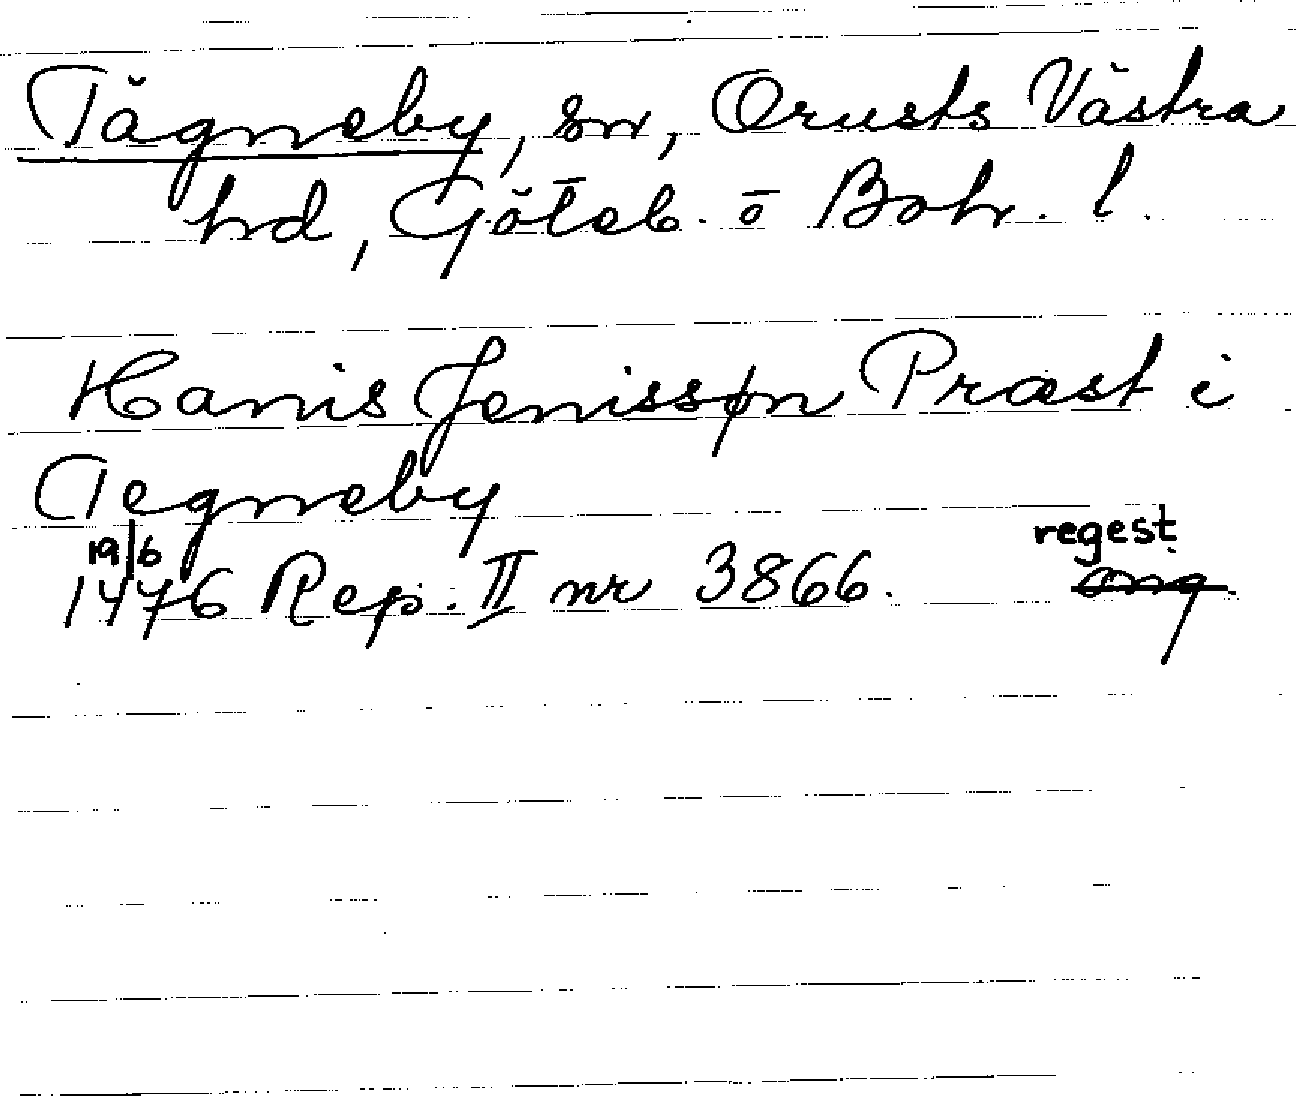 Tägneby, sn, Orusts Västra
hd, Göteb. o Boh. l.
Hannis Jenissøn Præst i
Tegneby
19/6 regest
1476 Rep. II nr 3866. orig